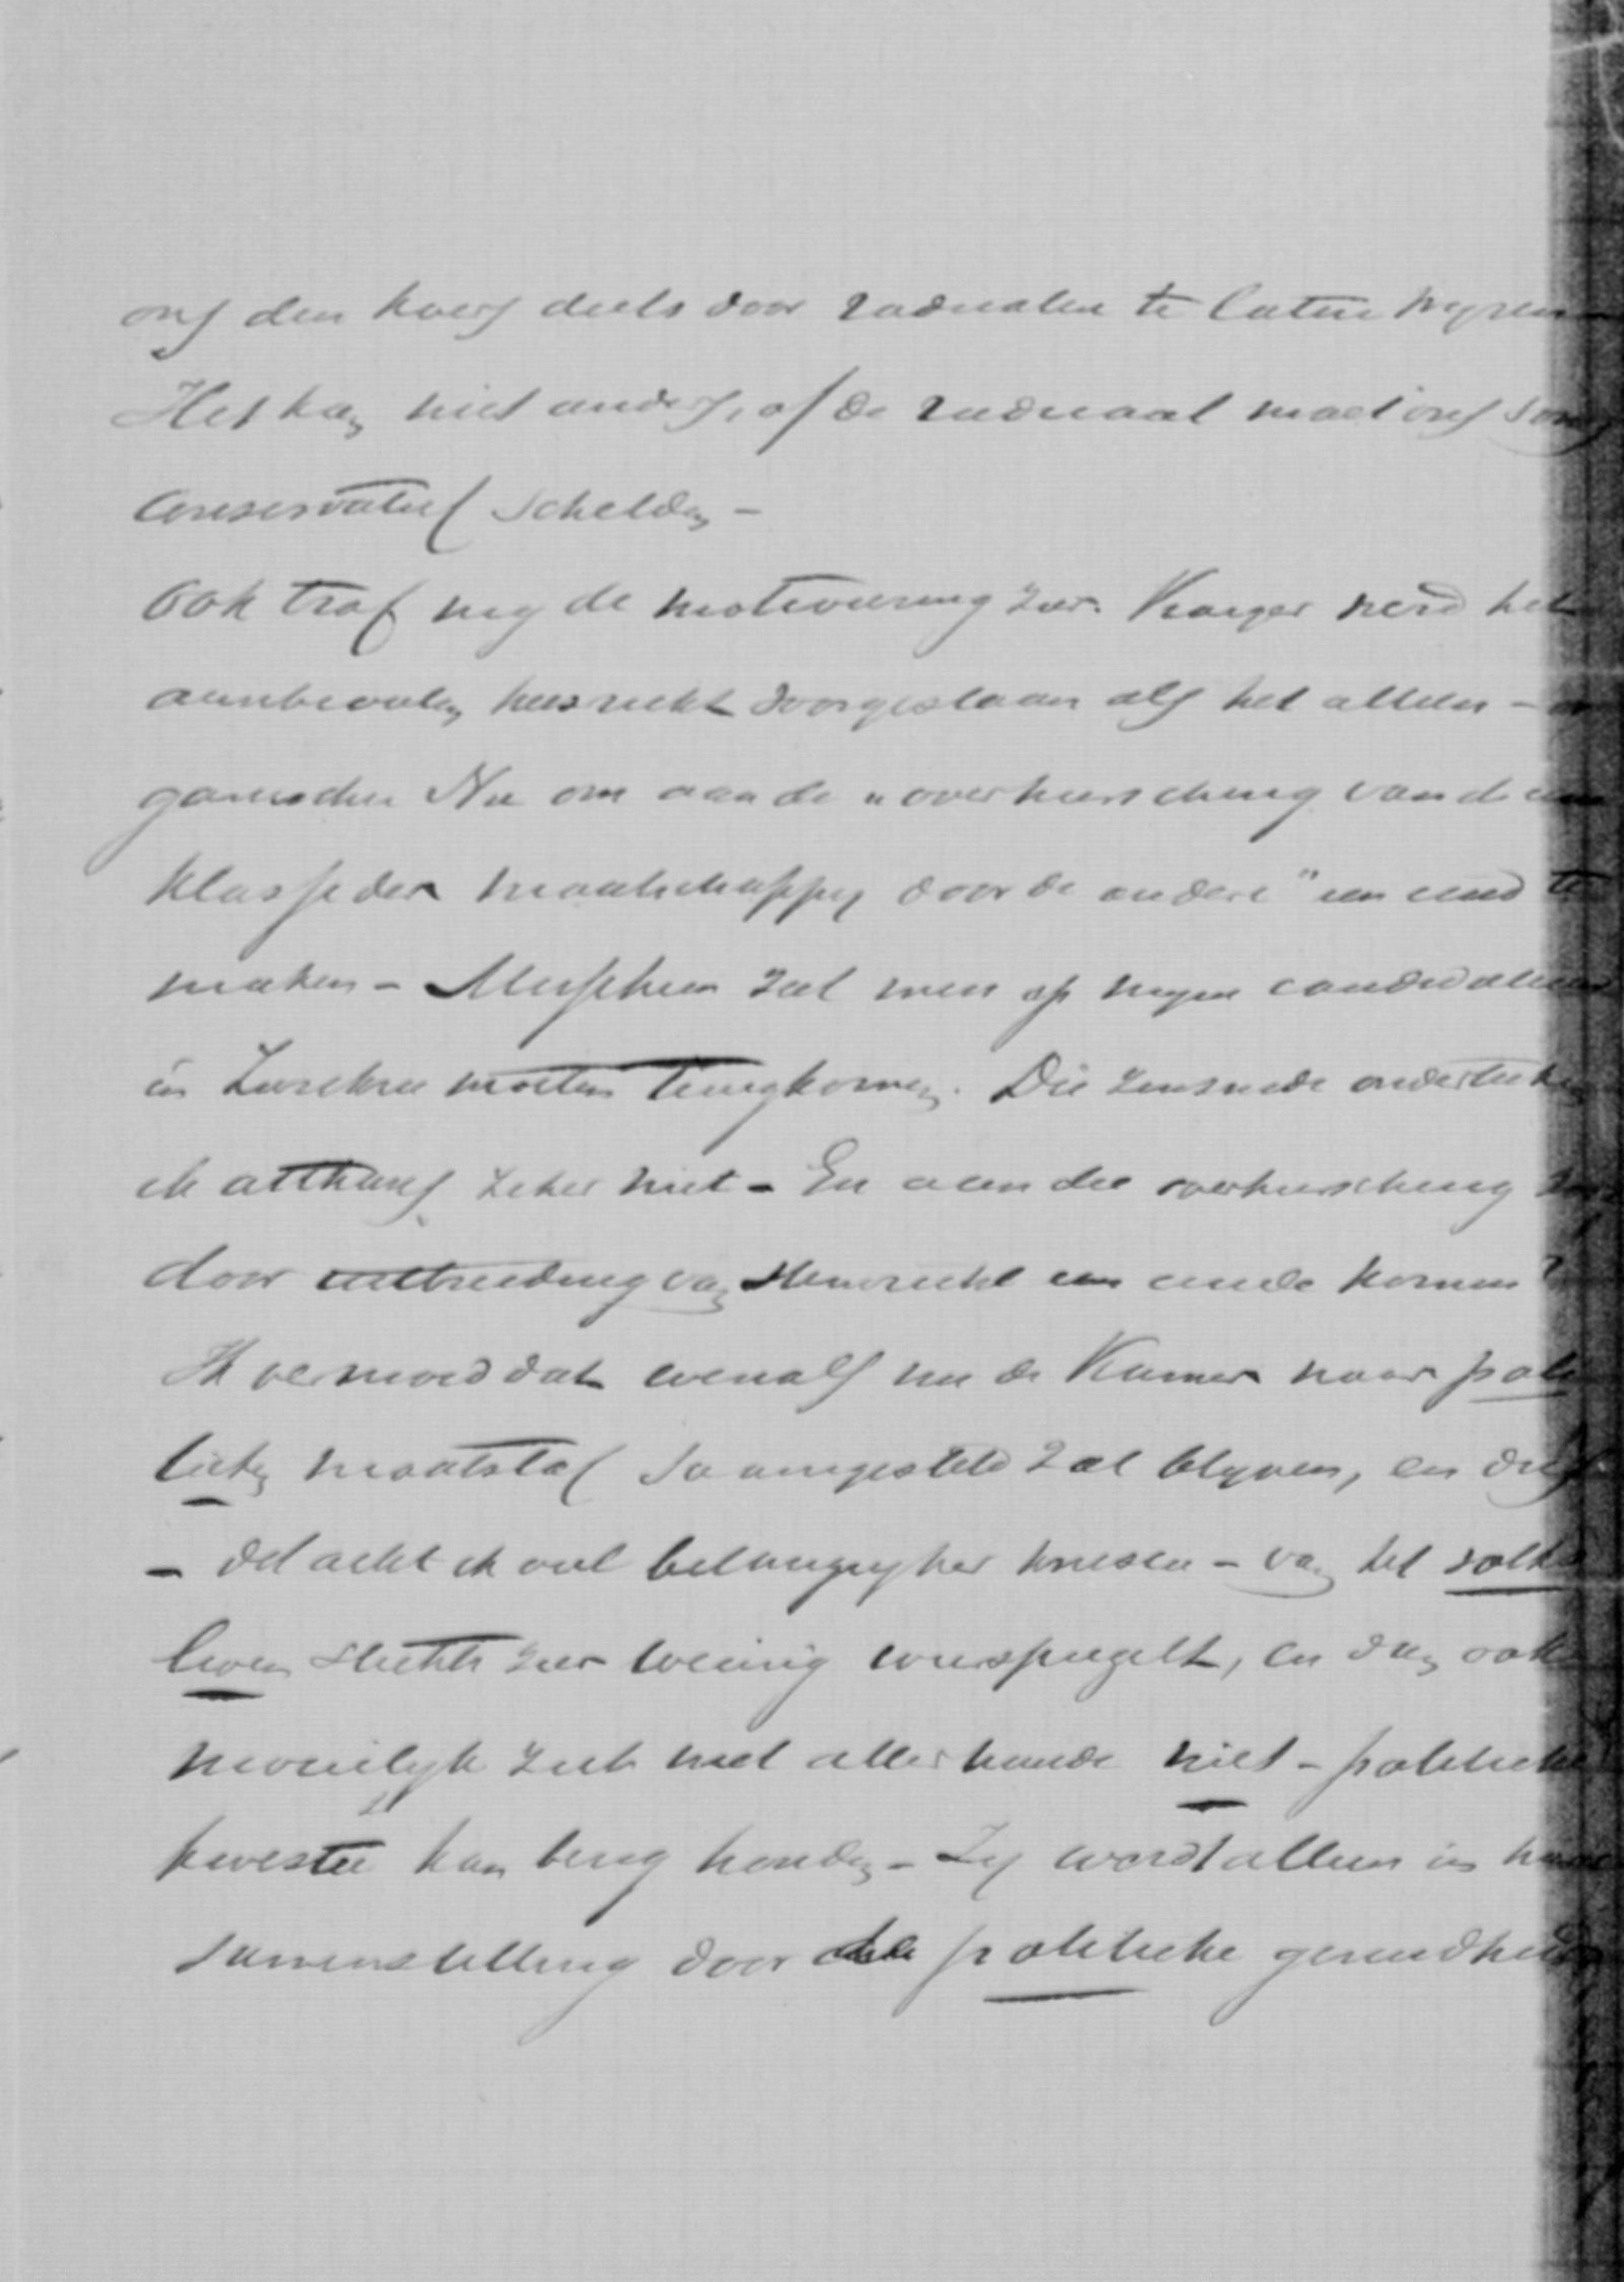 ons den koers deels door radicalen te laten wyzen
Het kan niet anders, of de radicaal moet ons soms
Conservatief schelden –
Ook trof my de motiveering zeer. Vroeger werd het
aanbevolen kiesrecht voorgeslaan als het alleen – or
ganische. Nu om aan de „overheersching van de eene
klasse der maatschappy door de andere" een eind te
maken – Misschien zal men op negen candidaten
in Zurichen moeten terugkomen. Die zinsnede onderteeken
ik althans zeker niet – En aan die overheersching zou
door uitbreiding van stemrecht een einde komen?
Ik vermoed dat evenals nu de Kamer naar poli
tieken maatstaf saamgesteld zal blyven, en dus
– dat acht ik veel belangryker kwestie – van het volks
leven slechts zeer weinig weerspiegelt, en dus ook
moeilyk zich met allerhande niet – politieke
kwestie kan bezig houden – Zy wordt alleen in haar
samenstelling door de politieke gezindheid